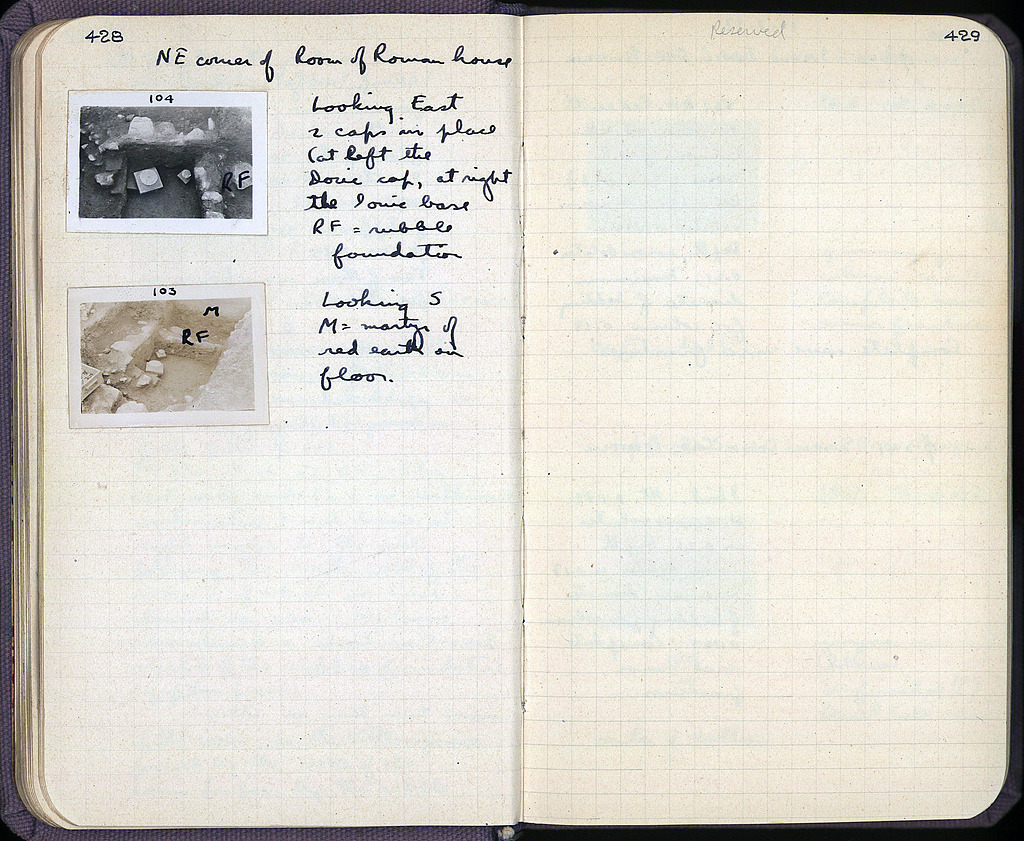 428
NE corner of Room of Roman house
104
RF
Looking East
2 caps in place
(at left the
Doric cap, at right
the Ionic base
RF = rubble
foundation
103
M
RF
Looking S
M = martyr of
red earth on
floor.
Reserved
429